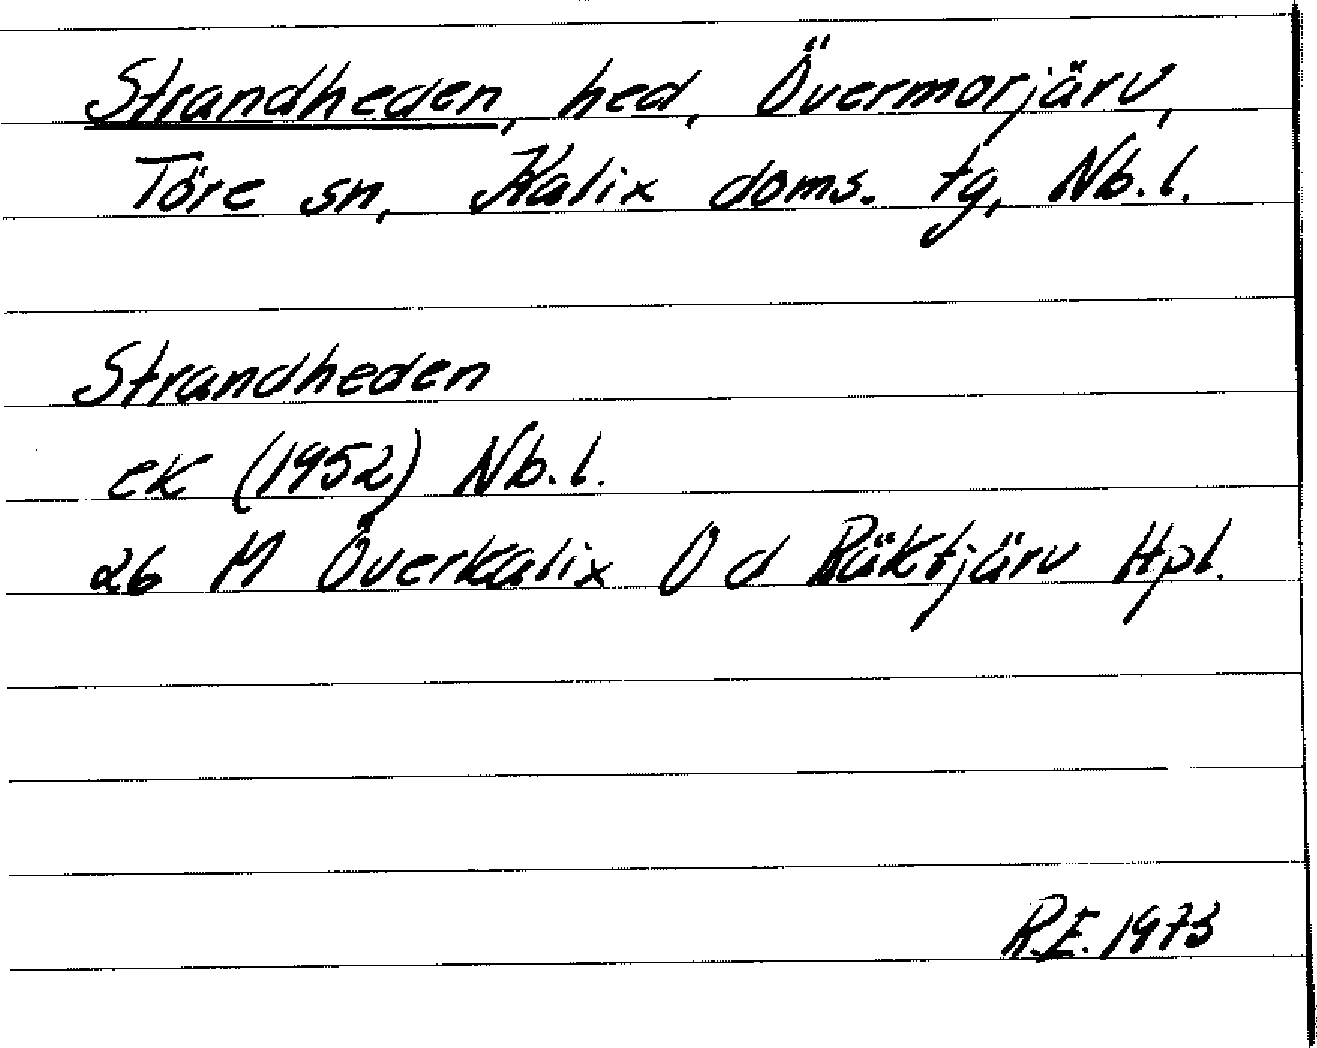 Strandheden, hed, Övermorjärv,
Töre sn, Kalix doms. tg, Nb.l.
Strandheden
ek (1952) Nb.l.
26 M Överkalix O d Räktjärv Hpl.
R.E. 1973